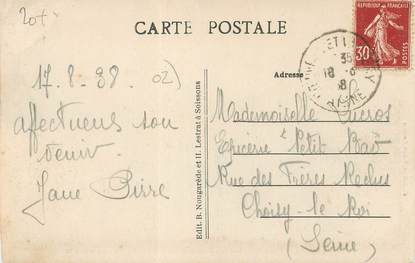 20f
CARTE POSTALE
REPUBLIQUE FRANÇAISE
30c
POSTES
Adresse
AISNE
17.8.38 02)
affectueux sou
venir
Jane Pierre
Edit. B. Nougarède et H. Lestrat à Soissons
Mademoiselle
Epicerie Petit
Rue des Frères Roches
Choisy-le Roi
(Seine)